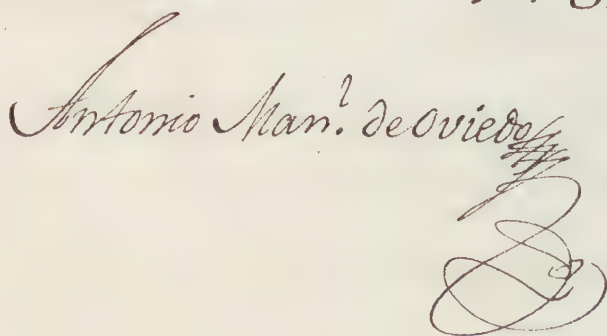 Antonio Man.l de Oviedo